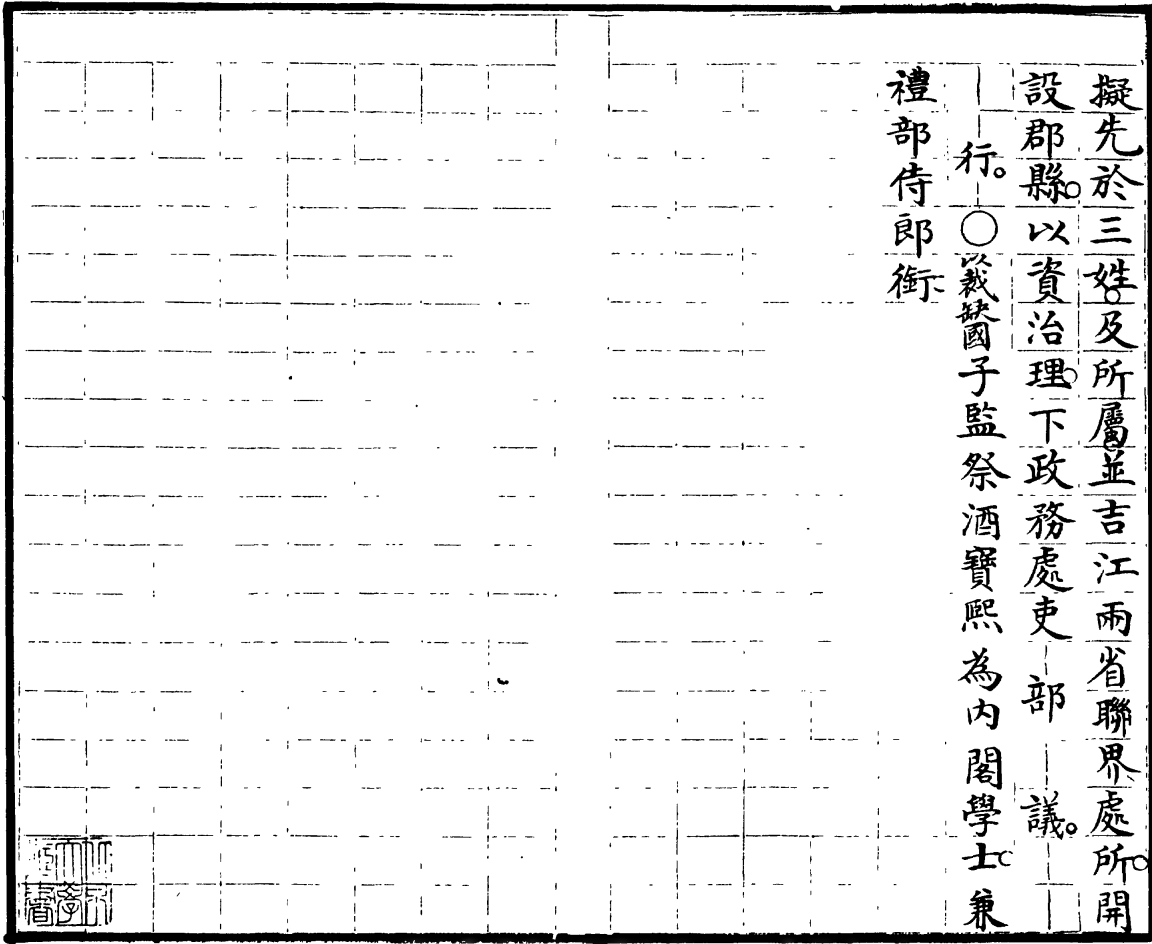 擬先於三姓。及所屬並吉江兩省聯界、處所。開
設郡縣。以資治理。下政務處吏部議。
行。〇以裁缺國子監祭酒寶熙為內閣學士。兼
禮部侍郎銜、